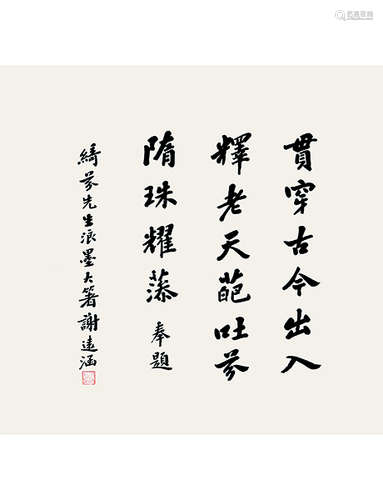 貫穿古今出入
釋老天葩吐芬
隋珠耀藻 奉題
綺芬先生浪墨大著謝遠涵